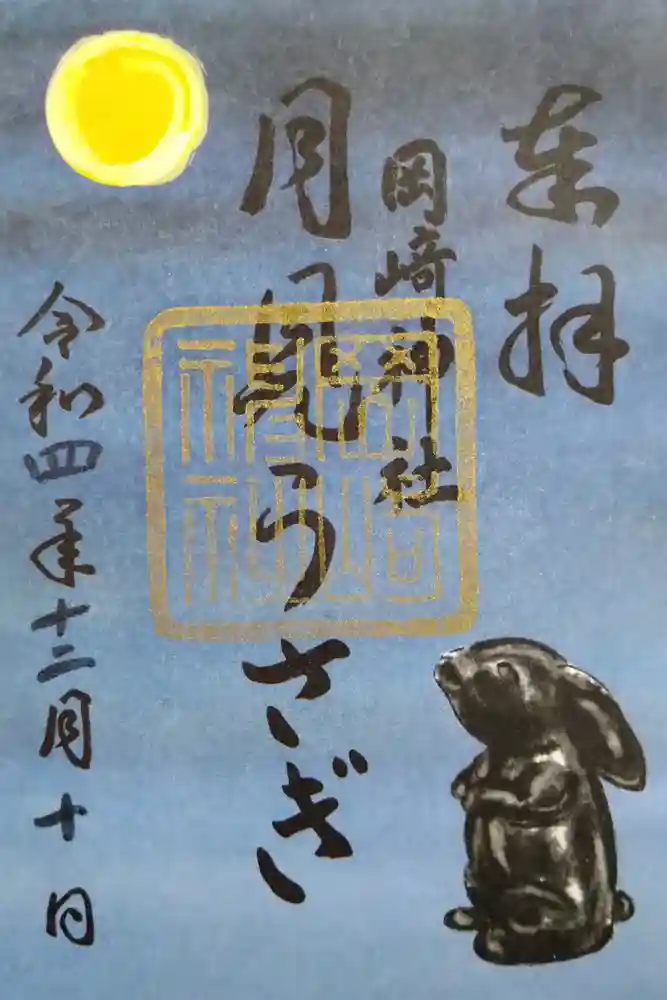 奉拝
岡崎神社
月見うさぎ
令和四年十二月十日
岡崎
神社